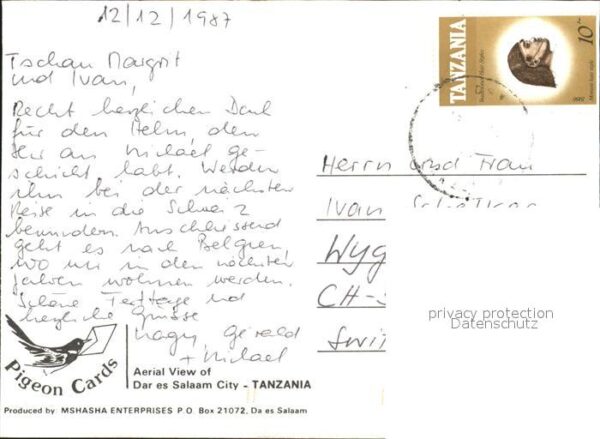 12/12/1987
Tschau Margrit
und Ivan,
Recht herzlichen Dank
für den Helm, den
Ihr an Michael ge-
schickt habt. Werden
ihn bei der nächsten
Reise in die Schweiz
bewundern. Anschliessend
geht es nach Belgien,
wo wir in den nächsten
Jahren wohnen werden.
Schöne Festtage und
herzliche Grüsse
Gérald
+ Michael
TANZANIA
10/-
Herrn und Frau
Ivan
CH-
privacy protection
Datenschutz
Pigeon Cards
Aerial View of
Dar es Salaam City - TANZANIA
Produced by MSHASHA ENTERPRISES P.O. Box 21072, Da es Salaam